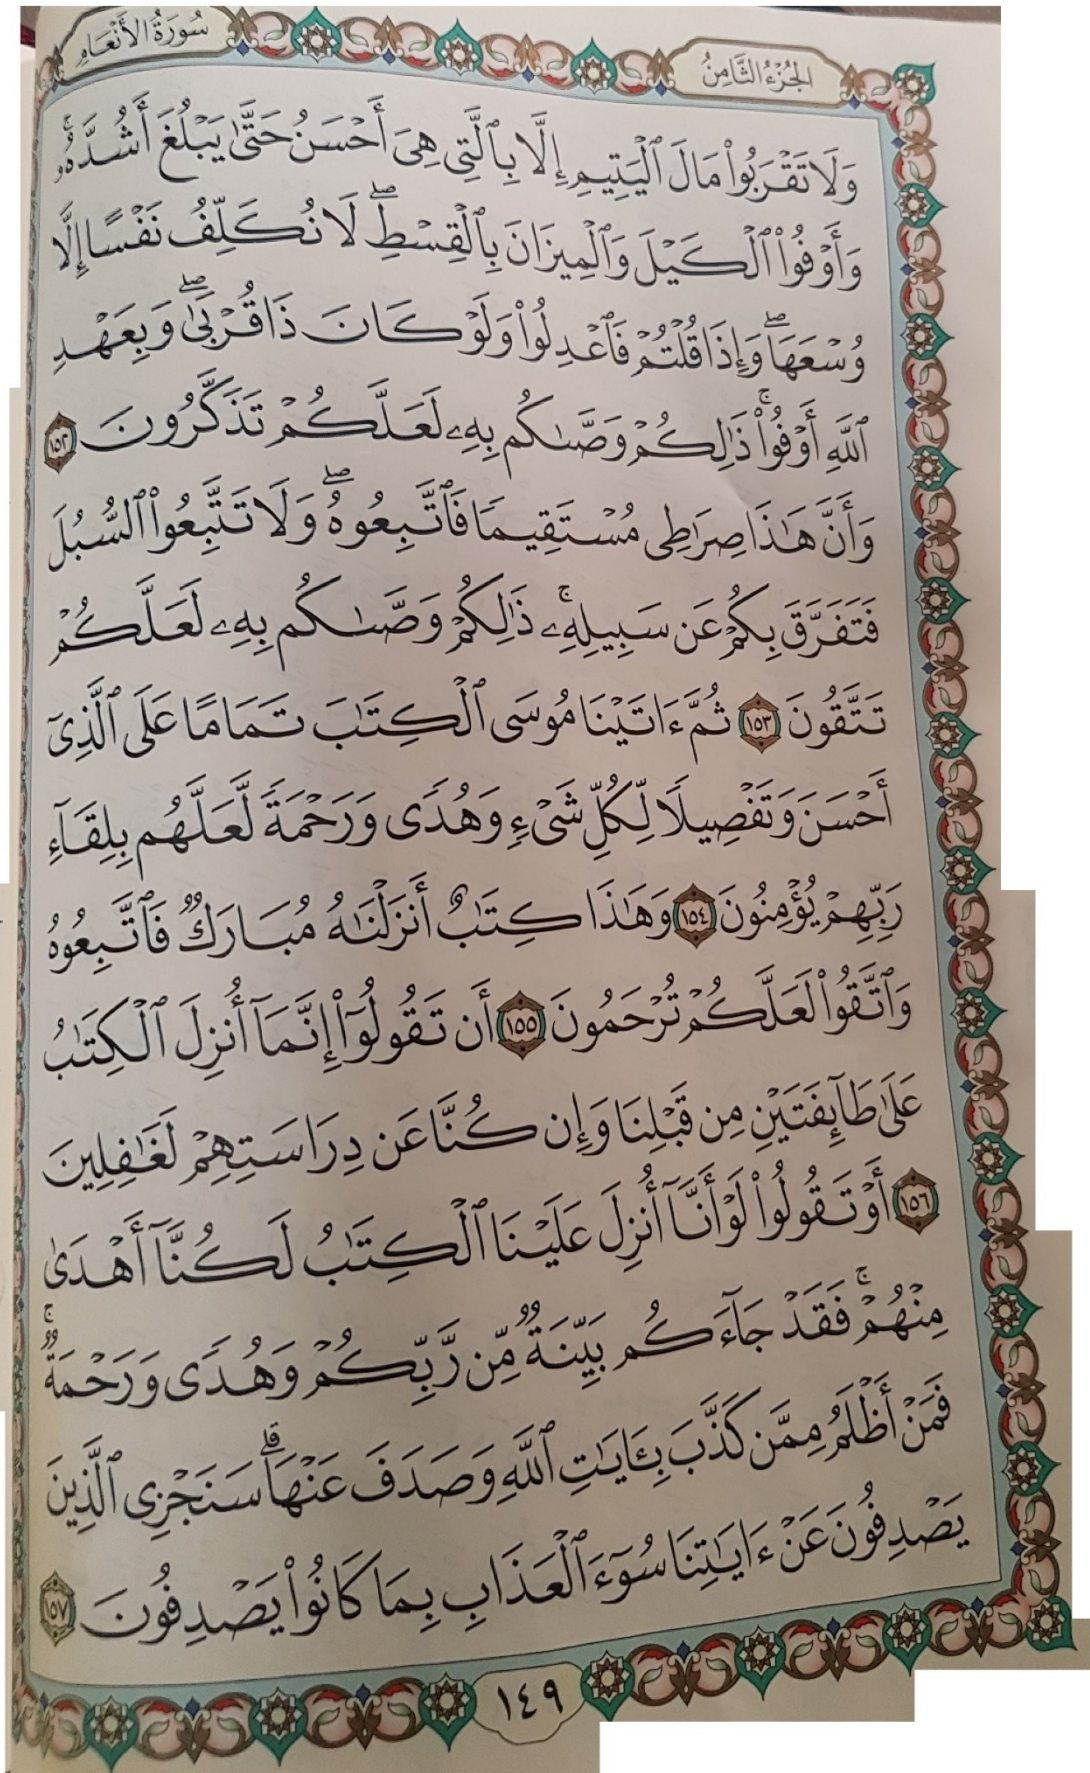 سُورَةُ الأَنْعَامِ
الجُزْءُ الثَّامِنُ
وَلَا تَقْرَبُوا۟ مَالَ ٱلْيَتِيمِ إِلَّا بِٱلَّتِى هِىَ أَحْسَنُ حَتَّىٰ يَبْلُغَ أَشُدَّهُۥۚ
وَأَوْفُوا۟ ٱلْكَيْلَ وَٱلْمِيزَانَ بِٱلْقِسْطِۖ لَا نُكَلِّفُ نَفْسًا إِلَّا
وُسْعَهَاۖ وَإِذَا قُلْتُمْ فَٱعْدِلُوا۟ وَلَوْ كَانَ ذَا قُرْبَىٰۖ وَبِعَهْدِ
ٱللَّهِ أَوْفُوا۟ۚ ذَٰلِكُمْ وَصَّىٰكُم بِهِۦ لَعَلَّكُمْ تَذَكَّرُونَ ١٥٢
وَأَنَّ هَٰذَا صِرَٰطِى مُسْتَقِيمًا فَٱتَّبِعُوهُۖ وَلَا تَتَّبِعُوا۟ ٱلسُّبُلَ
فَتَفَرَّقَ بِكُمْ عَن سَبِيلِهِۦۚ ذَٰلِكُمْ وَصَّىٰكُم بِهِۦ لَعَلَّكُمْ
تَتَّقُونَ ١٥٣ ثُمَّ ءَاتَيْنَا مُوسَى ٱلْكِتَٰبَ تَمَامًا عَلَى ٱلَّذِىٓ
أَحْسَنَ وَتَفْصِيلًا لِّكُلِّ شَىْءٍ وَهُدًى وَرَحْمَةً لَّعَلَّهُم بِلِقَآءِ
رَبِّهِمْ يُؤْمِنُونَ ١٥٤ وَهَٰذَا كِتَٰبٌ أَنزَلْنَٰهُ مُبَارَكٌ فَٱتَّبِعُوهُ
وَٱتَّقُوا۟ لَعَلَّكُمْ تُرْحَمُونَ ١٥٥ أَن تَقُولُوٓا۟ إِنَّمَآ أُنزِلَ ٱلْكِتَٰبُ
عَلَىٰ طَآئِفَتَيْنِ مِن قَبْلِنَا وَإِن كُنَّا عَن دِرَاسَتِهِمْ لَغَٰفِلِينَ
١٥٦ أَوْ تَقُولُوا۟ لَوْ أَنَّآ أُنزِلَ عَلَيْنَا ٱلْكِتَٰبُ لَكُنَّآ أَهْدَىٰ
مِنْهُمْۚ فَقَدْ جَآءَكُم بَيِّنَةٌ مِّن رَّبِّكُمْ وَهُدًى وَرَحْمَةٌۚ
فَمَنْ أَظْلَمُ مِمَّن كَذَّبَ بِـَٔايَٰتِ ٱللَّهِ وَصَدَفَ عَنْهَاۗ سَنَجْزِى ٱلَّذِينَ
يَصْدِفُونَ عَنْ ءَايَٰتِنَا سُوٓءَ ٱلْعَذَابِ بِمَا كَانُوا۟ يَصْدِفُونَ ١٥٧
١٤٩